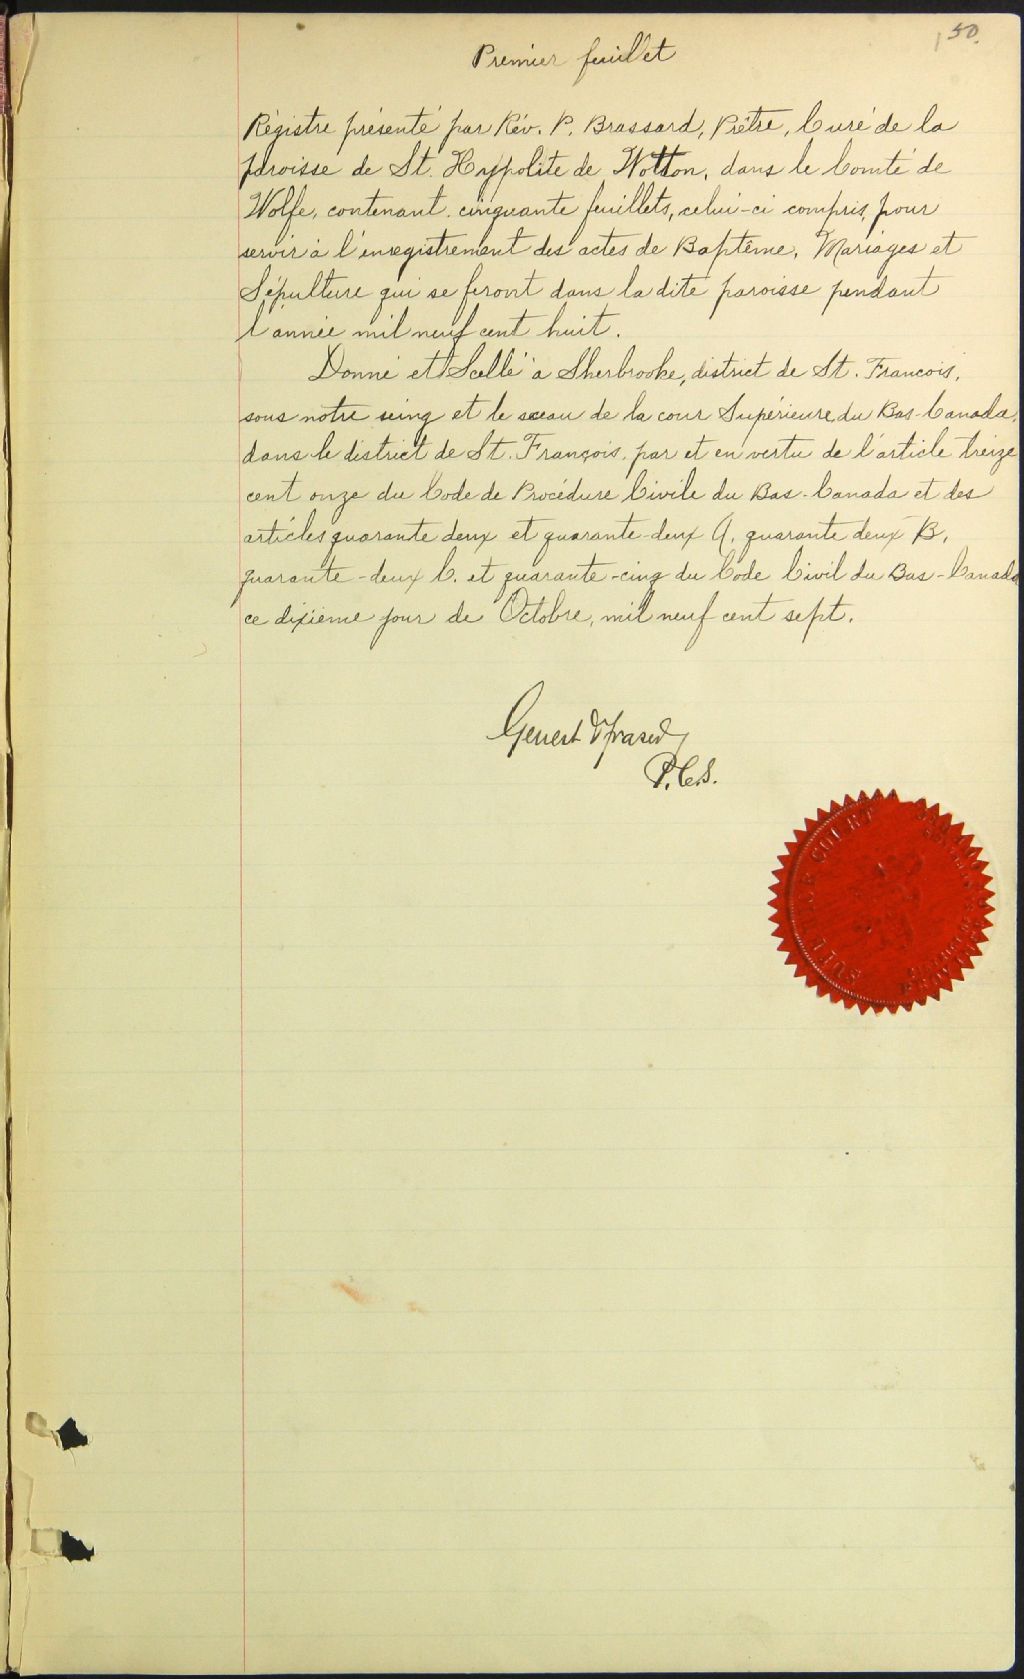 50.
Premier feuillet
Régistre présenté par Rév. P. Brassard, Prêtre, Curé de la
paroisse de St. Hyppolite de Wotton, dans le Comté de
Wolfe, contenant cinquante feuillets, celui-ci compris, pour
servir à l'enregistrement des actes de Baptême, Mariages et
Sépulture qui se feront dans la dite paroisse pendant
l'année mil neuf cent huit.
Donné et Scellé à Sherbrooke, district de St. Francois,
sous notre seing et le sceau de la cour Supérieure, du Bas-Canada,
dans le district de St. François, par et en vertu de l'article treize
cent onze du Code de Procédure Civile du Bas-Canada et des
articles quarante deux et quarante-deux A, quarante deux B,
quarante-deux C. et quarante-cinq du Code Civil du Bas-Canada
ce dixième jour de Octobre, mil neuf cent sept.
Genest & Fraser
P.C.S.
SUPERIOR COURT